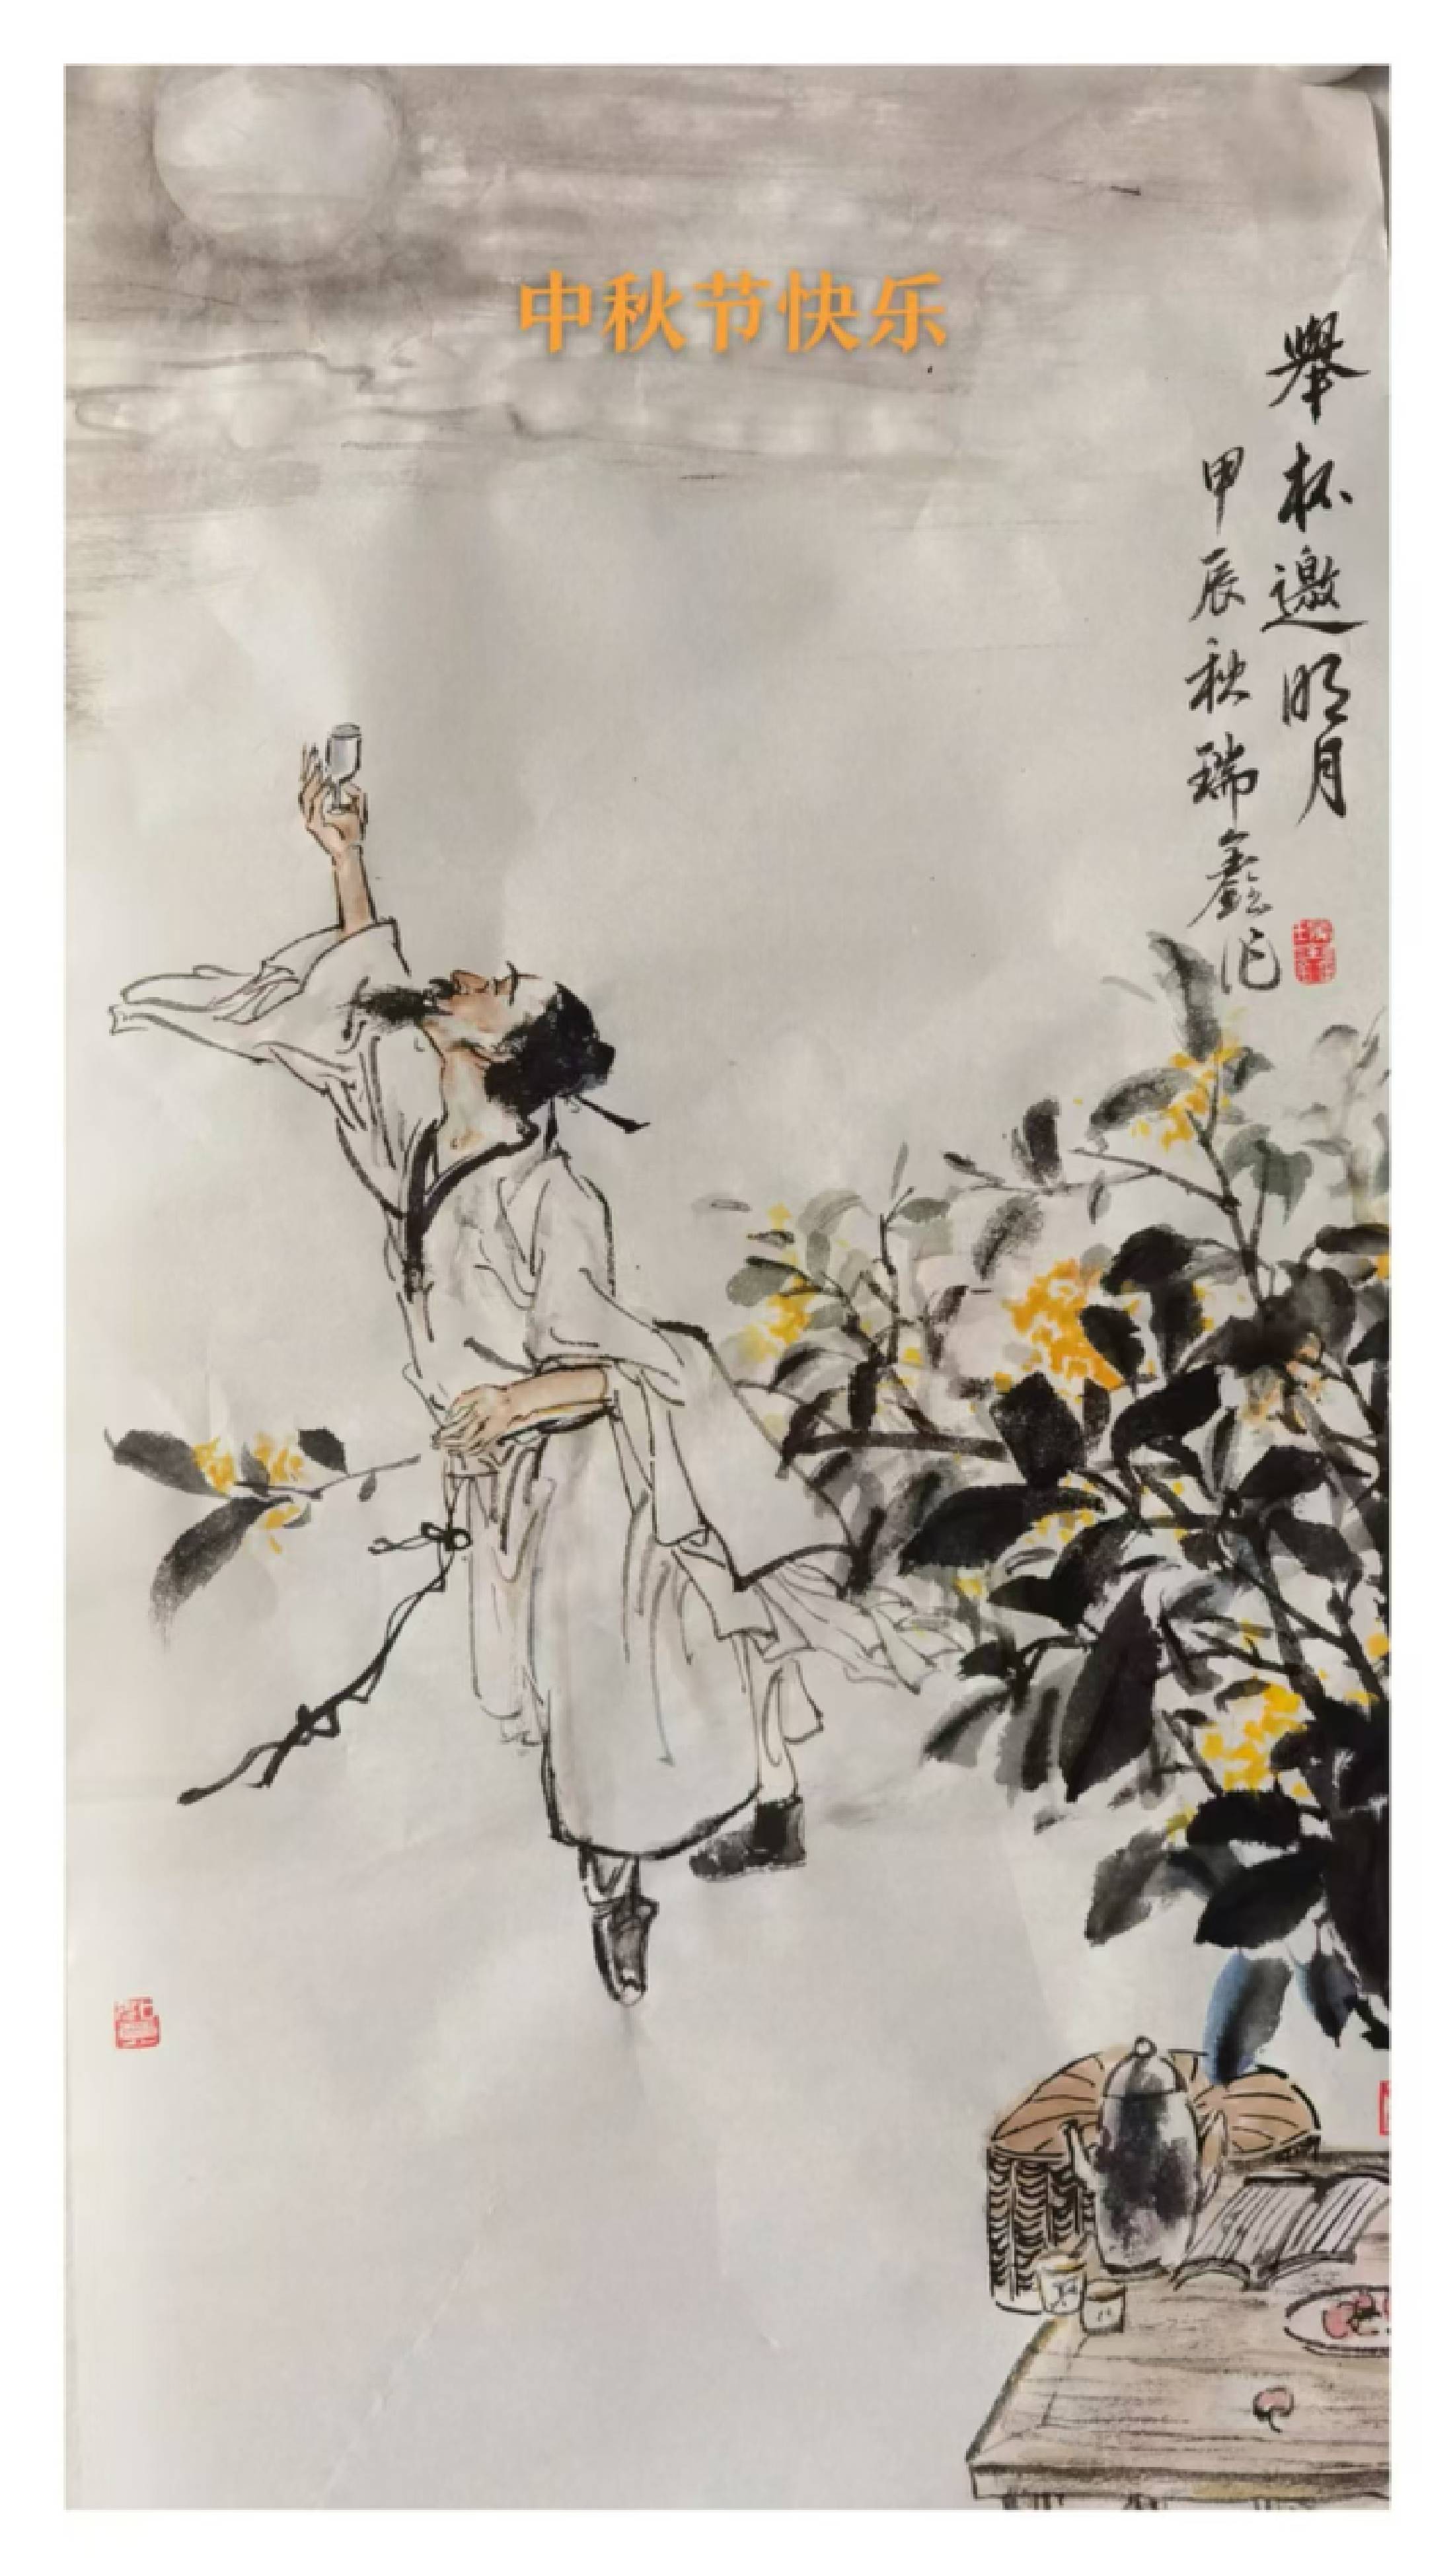 中秋节快乐
舉杯邀明月
甲辰秋瑞鑫作